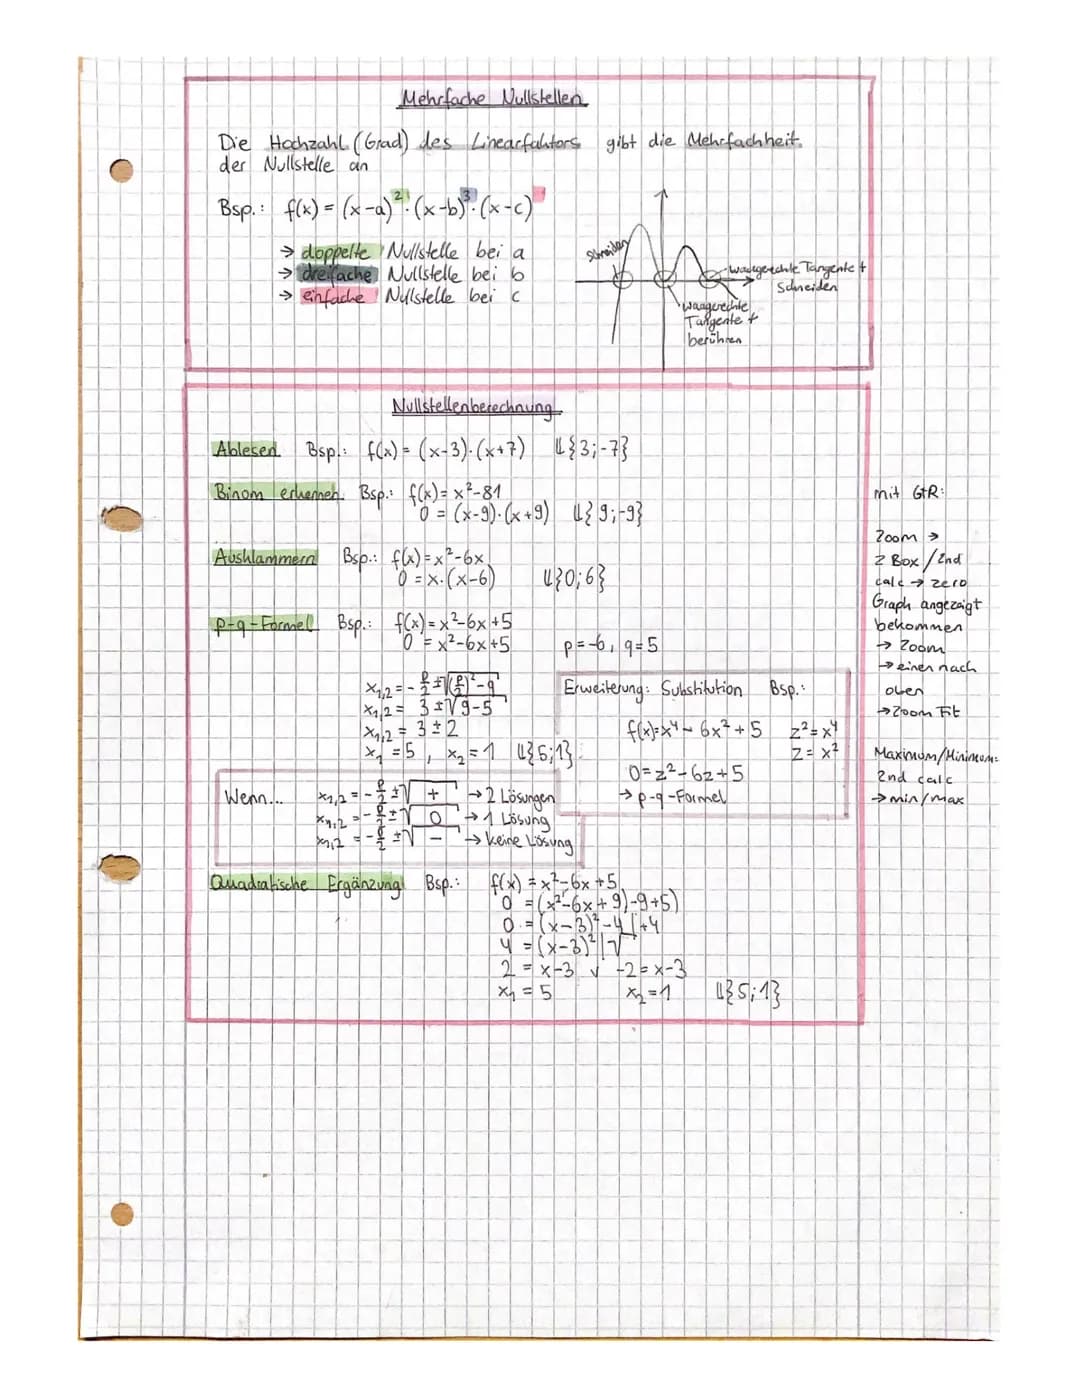 Mehrfache Nullstellen
Die Hochzahl (Grad) des Linearfaktors gibt die Mehrfachheit
der Nullstelle an
Bsp.: f(x) = (x-a)²·(x-b)³·(x-c)
→ doppelte Nullstelle bei a
→ dreifache Nullstelle bei b
→ einfache Nullstelle bei c
Schneiden
waagerechte Tangente +
Schneiden
waagerechte
Tangente +
berühren
Nullstellenberechnung
Ablesen Bsp.: f(x) = (x-3)·(x+7) 𝕃{3;-7}
Binom erkennen Bsp.: f(x) = x²-81
0 = (x-9)·(x+9) 𝕃{9;-9}
Ausklammern Bsp.: f(x) = x²-6x
0 = x·(x-6) 𝕃{0;6}
p-q-Formel Bsp.: f(x) = x²-6x+5
0 = x²-6x+5 p=-6, q=5
x₁,₂ = -p/2 ±√(p/2)²-q
x₁,₂ = 3 ±√9-5
x₁,₂ = 3 ± 2
x₁ = 5, x₂ = 1 𝕃{5;1}
Erweiterung: Substitution Bsp.:
f(x)=x⁴-6x²+5 z²=x⁴
z=x²
0=z²-6z+5
→ p-q-Formel
Wenn... x₁,₂ = -p/2 ±√ + → 2 Lösungen
x₁,₂ = -p/2 ±√ 0 → 1 Lösung
x₁,₂ = -p/2 ±√ - → keine Lösung
Quadratische Ergänzung Bsp.: f(x) = x²-6x+5
0 = (x²-6x+9)-9+5)
0 = (x-3)²-4 |+4
4 = (x-3)² |√
2 = x-3 ∨ -2 = x-3
x₁ = 5 x₂ = 1 𝕃{5;1}
mit GTR:
Zoom →
Z Box / 2nd
calc → zero
Graph angezeigt
bekommen
→ Zoom
→ einen nach
oben
→ Zoom Fit
Maximum/Minimum:
2nd calc
→ min/max